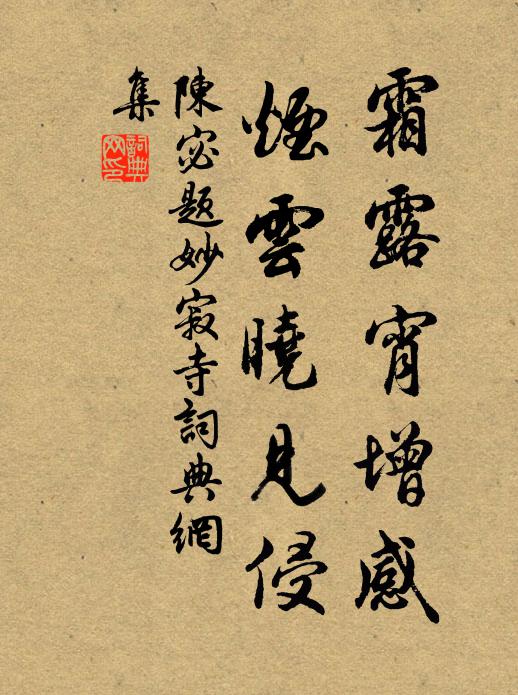 霜露宵增感
煙雲曉見侵
陳宓題妙寂寺詞典網
集
詞典網印